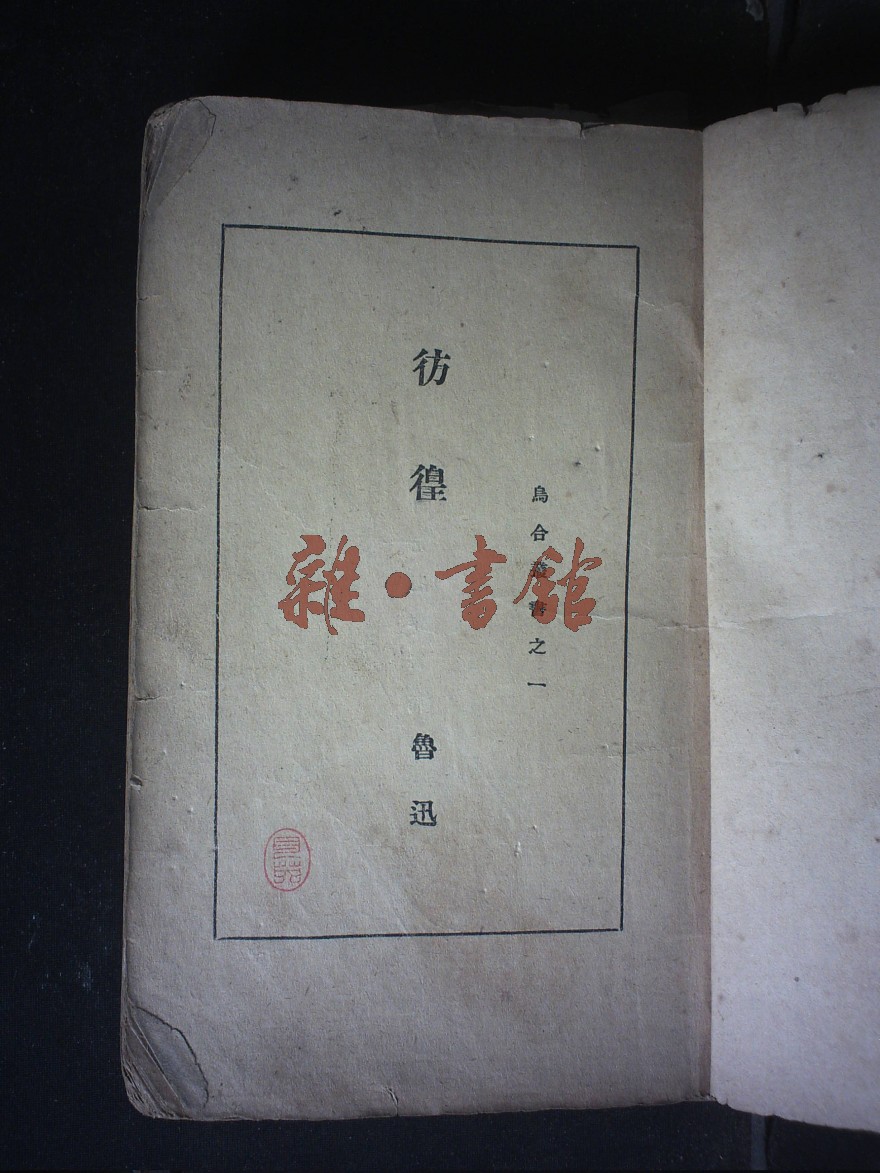 烏合叢書之一
彷徨
魯迅
雜·書館